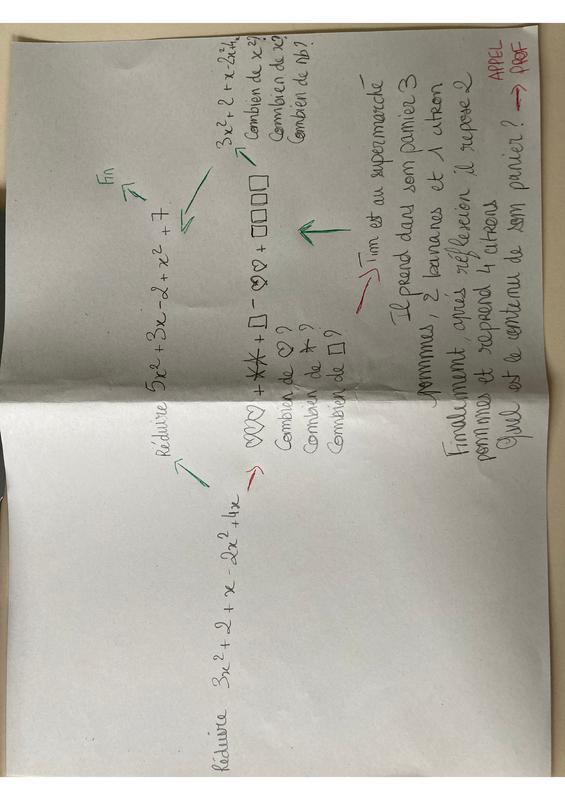 Réduire 3x² + 2 + x - 2x² + 4x
Réduire 5x² + 3x - 2 + x² + 7
Fin
♡♡♡ + ** + □ - ♡♡ + □□□□
Combien de ♡?
Combien de *?
Combien de □?
3x² + 2 + x - 2x² + 4x
Combien de x²?
Combien de x?
Combien de nb?
Tim est au supermarché
Il prend dans son panier 3
pommes, 2 bananes et 1 citron
Finalement, après réflexion il repose 2
pommes et reprend 4 citrons
Quel est le contenu de son panier? → APPEL
PROF